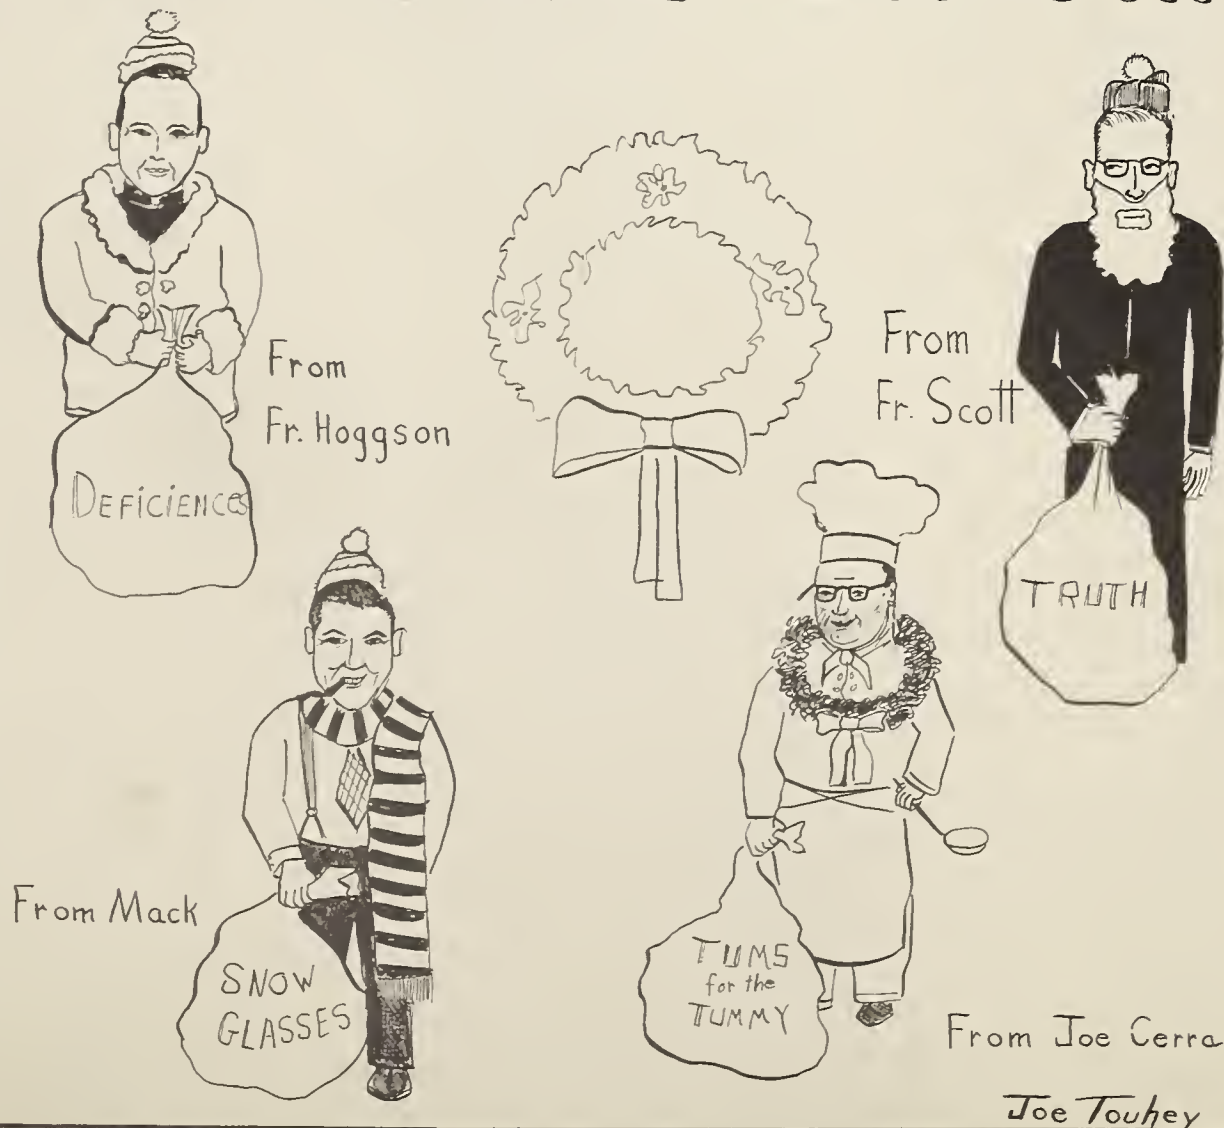 From
Fr. Hoggson
DEFICIENCES
From
Fr. Scott
TRUTH
From Mack
SNOW
GLASSES
TUMS
for the
TUMMY
From Joe Cerra
Joe Touhey